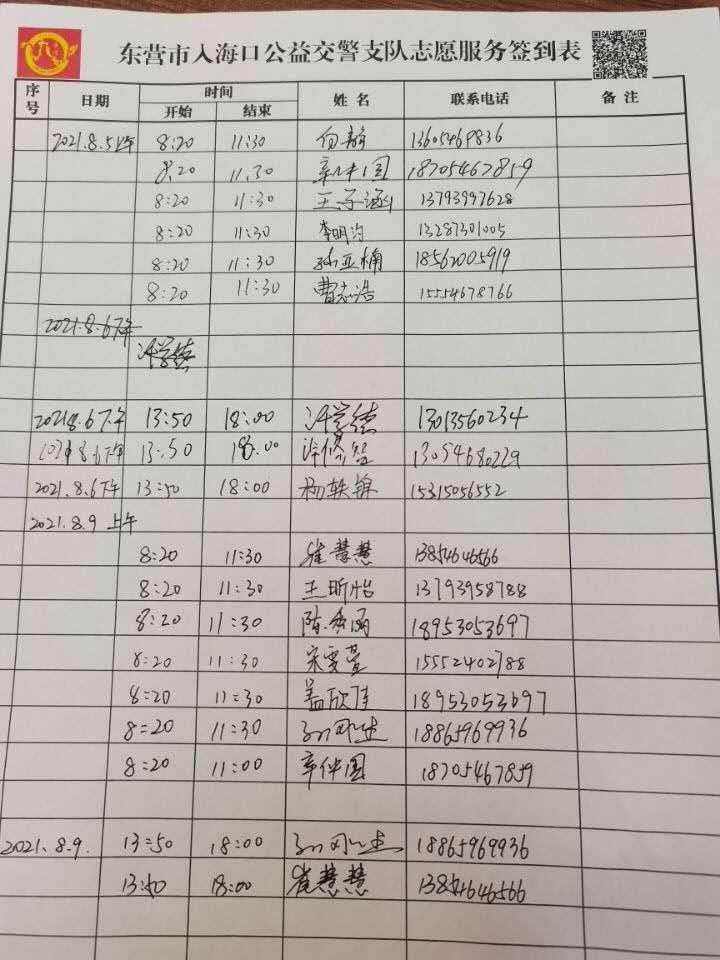 东营市入海口公益交警支队志愿服务签到表
序号 日期 时间 姓名 联系电话 备注
开始 结束
2021.8.5上午 8:20 11:30 13605469836
8:20 11:30 章伴国 18705467859
8:20 11:30 王子涵 13793997628
8:20 11:30 李明泃 13287301005
8:20 11:30 孙亚楠 18562005919
8:20 11:30 曹志浩 15554678766
2021.8.6下午
许学德
2021.8.6下午 13:50 18:00 许学德 13013560234
2021.8.6下午 13:50 18:00 许修智 13054680229
2021.8.6下午 13:50 18:00 杨轶锦 15315056552
2021.8.9 上午
8:20 11:30 崔慧慧 13854646566
8:20 11:30 王昕怡 13793958788
8:20 11:30 18953053697
8:20 11:30 宋雯萱 15552402788
8:20 11:30 盖欣佳 18953053697
8:20 11:30 18865969936
8:20 11:00 章伴国 18705467859
2021.8.9. 13:50 18:00 18865969936
13:50 18:00 崔慧慧 13854646566